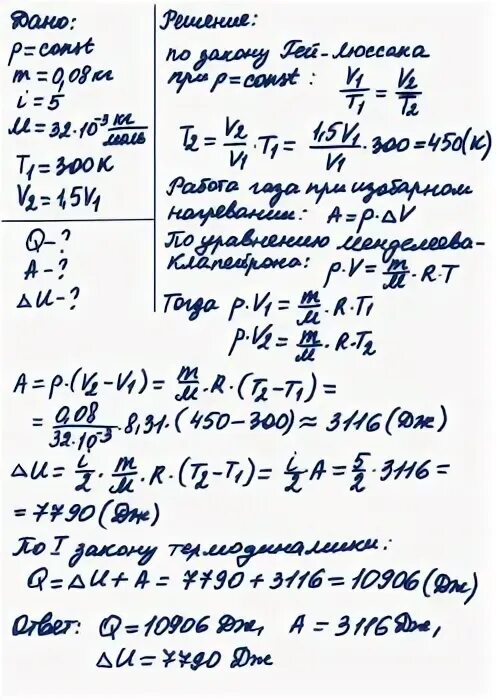 Дано:
p=const
m=0,08кг
i=5
M=32·10⁻³ кг/моль
T₁=300K
V₂=1,5V₁
Q-?
A-?
ΔU-?
Решение:
по закону Гей-Люссака
при p=const: V₁/T₁ = V₂/T₂
T₂ = V₂/V₁ · T₁ = 1,5V₁/V₁ · 300 = 450(К)
Работа газа при изобарном
нагревании: A=p·ΔV
По уравнению Менделеева-
Клапейрона: p·V = m/M · R·T
Тогда p·V₁ = m/M · R·T₁
p·V₂ = m/M · R·T₂
A=p·(V₂-V₁) = m/M · R·(T₂-T₁) =
= 0,08/32·10⁻³ · 8,31·(450-300) ≈ 3116 (Дж)
ΔU = i/2 · m/M · R·(T₂-T₁) = i/2 A = 5/2 · 3116 =
= 7790 (Дж)
По I закону термодинамики:
Q=ΔU+A = 7790+3116 = 10906 (Дж)
Ответ: Q=10906 Дж, A=3116 Дж,
ΔU=7790 Дж